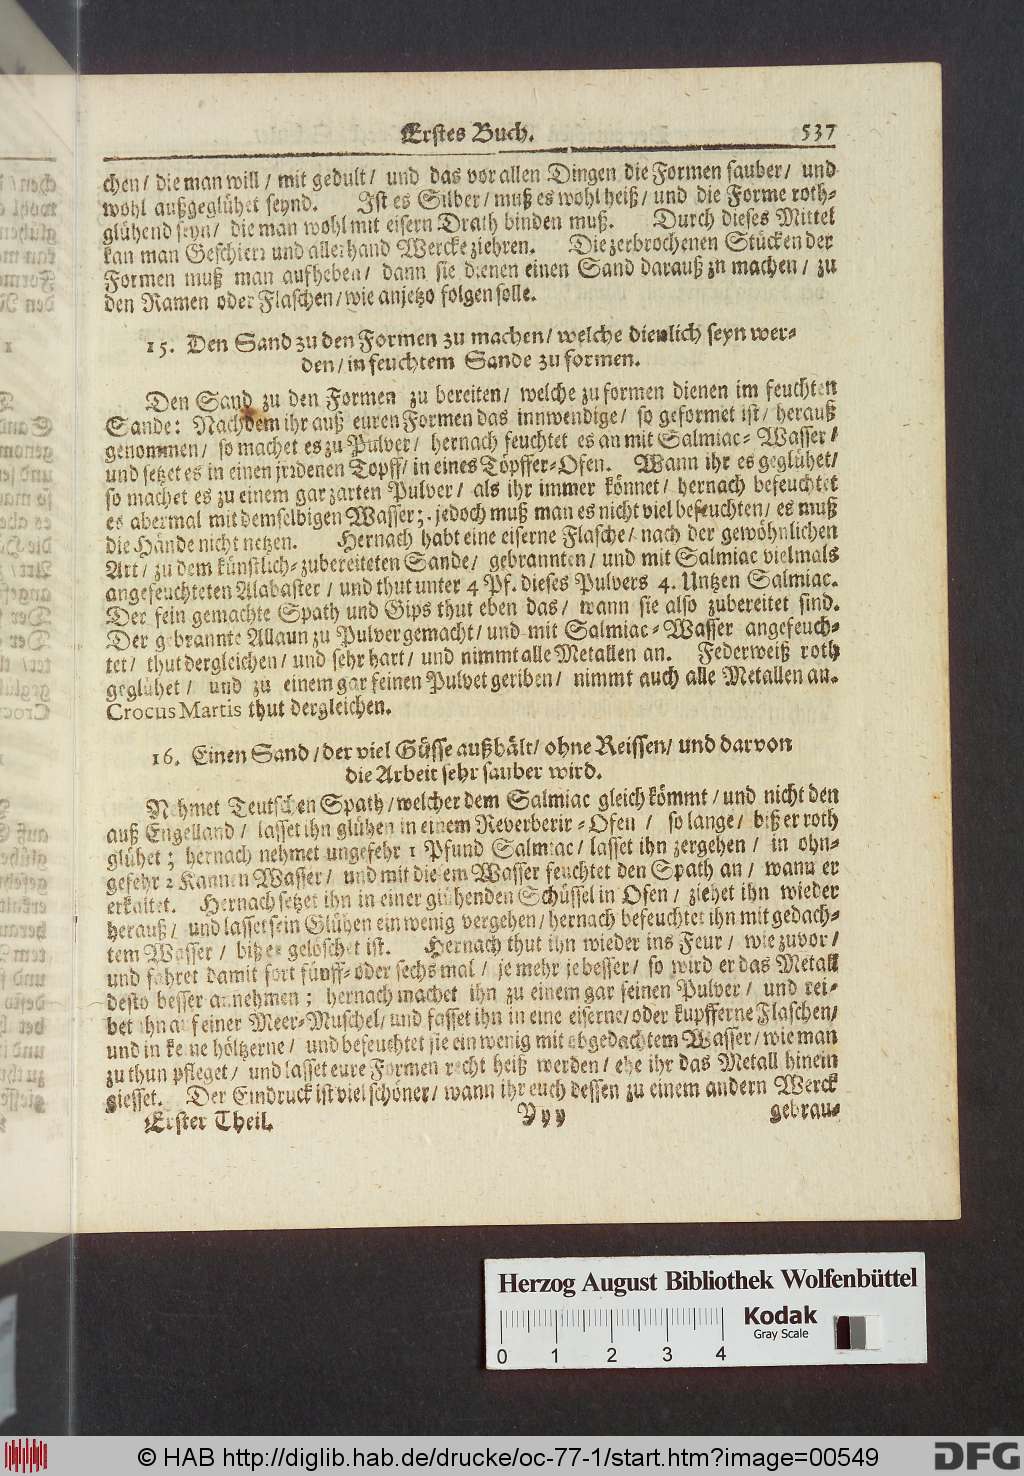 Erstes Buch. 537
chen/ die man will/ mit gedult/ und das vor allen Dingen die Formen sauber/ und
wohl außgeglühet seynd. Ist es Silber/ muß es wohl heiß/ und die Forme roth-
glühend seyn/ die man wohl mit eisern Drath binden muß. Durch dieses Mittel
kan man Geschierr und allerhand Wercke ziehren. Die zerbrochenen Stücken der
Formen muß man aufheben/ dann sie dienen einen Sand darauß zu machen/ zu
den Ramen oder Flaschen/ wie anjetzo folgen solle.
15. Den Sand zu den Formen zu machen/ welche dienlich seyn wer-
den/ in feuchtem Sande zu formen.
Den Sand zu den Formen zu bereiten/ welche zu formen dienen im feuchten
Sande: Nachdem ihr auß euren Formen das innwendige/ so geformet ist/ herauß
genommen/ so machet es zu Pulver/ hernach feuchtet es an mit Salmiac-Wasser/
und setzet es in einen jrdenen Topff/ in eines Töpffer-Ofen. Wann ihr es geglühet/
so machet es zu einem gar zarten Pulver/ als ihr immer könnet/ hernach befeuchtet
es abermal mit demselbigen Wasser; jedoch muß man es nicht viel befeuchten/ es muß
die Hände nicht netzen. Hernach habt eine eiserne Flasche/ nach der gewöhnlichen
Art/ zu dem künstlich-zubereiteten Sande/ gebrannten/ und mit Salmiac vielmals
angefeuchteten Alabaster/ und thut unter 4 Pf. dieses Pulvers 4. Untzen Salmiac.
Der fein gemachte Spath und Gips thut eben das/ wann sie also zubereitet sind.
Der gebrannte Allaun zu Pulver gemacht/ und mit Salmiac-Wasser angefeuch-
tet/ thut dergleichen/ und sehr hart/ und nimmt alle Metallen an. Federweiß roth
geglühet/ und zu einem gar feinen Pulvet geriben/ nimmt auch alle Metallen an.
Crocus Martis thut dergleichen.
16. Einen Sand/ der viel Güsse außhält/ ohne Reissen/ und darvon
die Arbeit sehr sauber wird.
Nehmet Teutschen Spath/ welcher dem Salmiac gleich kömmt/ und nicht den
auß Engelland/ lasset ihn glühen in einem Reverberir-Ofen/ so lange/ biß er roth
glühet; hernach nehmet ungefehr 1 Pfund Salmiac/ lasset ihn zergehen/ in ohn-
gefehr 2 Kannen Wasser/ und mit diesem Wasser feuchtet den Spath an/ wann er
erkaltet. Hernach setzet ihn in einer glühenden Schüssel in Ofen/ ziehet ihn wieder
herauß/ und lasset sein Glühen ein wenig vergehen/ hernach befeuchtet ihn mit gedach-
tem Wasser/ biß er gelöschet ist. Hernach thut ihn wieder ins Feur/ wie zuvor/
und fahret damit fort fünff- oder sechs mal/ je mehr je besser/ so wird er das Metall
desto besser annehmen; hernach machet ihn zu einem gar feinen Pulver/ und rei-
bet ihn auf einer Meer-Muschel/ und fasset ihn in eine eiserne/ oder kupfferne Flaschen/
und in keine höltzerne/ und befeuchtet sie ein wenig mit abgedachtem Wasser/ wie man
zu thun pfleget/ und lasset eure Formen recht heiß werden/ ehe ihr das Metall hinein
giesset. Der Eindruck ist viel schöner/ wann ihr euch dessen zu einem andern Werck
Erster Theil. Yyy gebrau-
Herzog August Bibliothek Wolfenbüttel
Kodak
Gray Scale
0 1 2 3 4
© HAB http://diglib.hab.de/drucke/oc-77-1/start.htm?image=00549
DFG